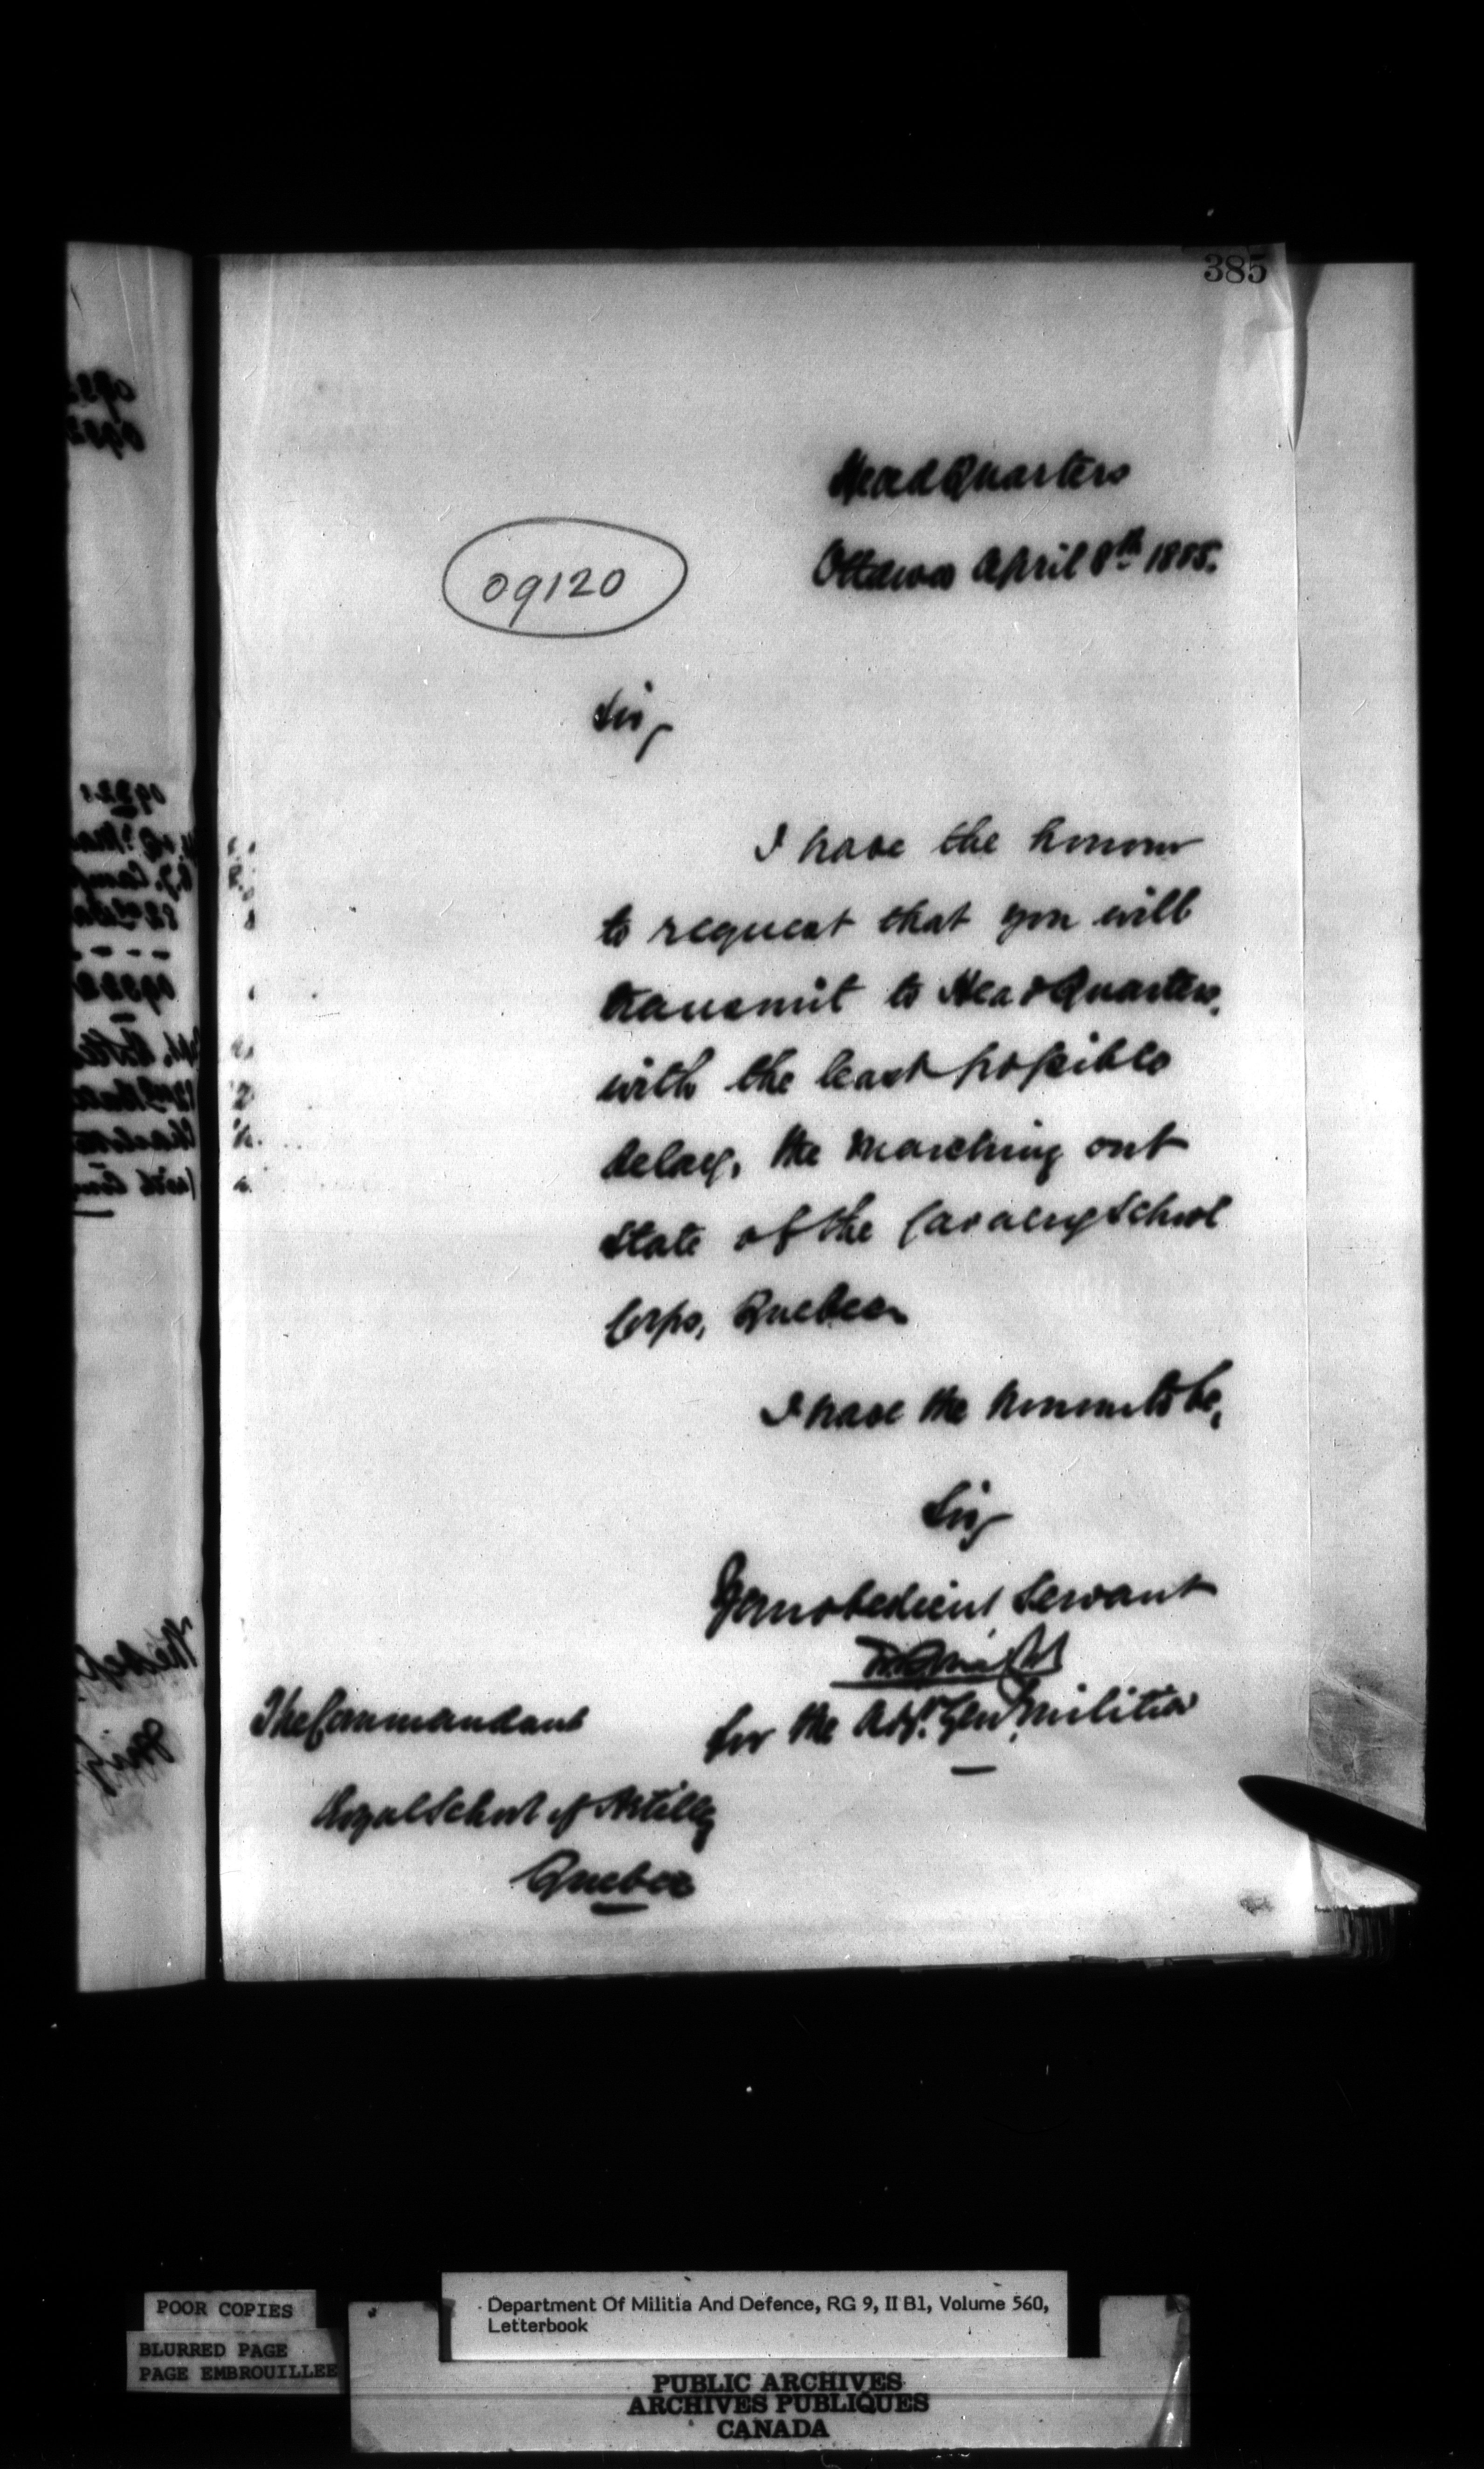 385
Head Quarters
Ottawa April 8th 1885.
09120
Sir,
I have the honour
to request that you will
transmit to Head Quarters,
with the least possible
delay, the marching out
state of the Cavalry School
Corps, Quebec.
I have the honour to be,
Sir,
Your obedient Servant
for the Adjt. Genl. Militia
The Commandant
Royal School of Artilly
Quebec
POOR COPIES
BLURRED PAGE
PAGE EMBROUILLEE
Department Of Militia And Defence, RG 9, II B1, Volume 560,
Letterbook
PUBLIC ARCHIVES
ARCHIVES PUBLIQUES
CANADA